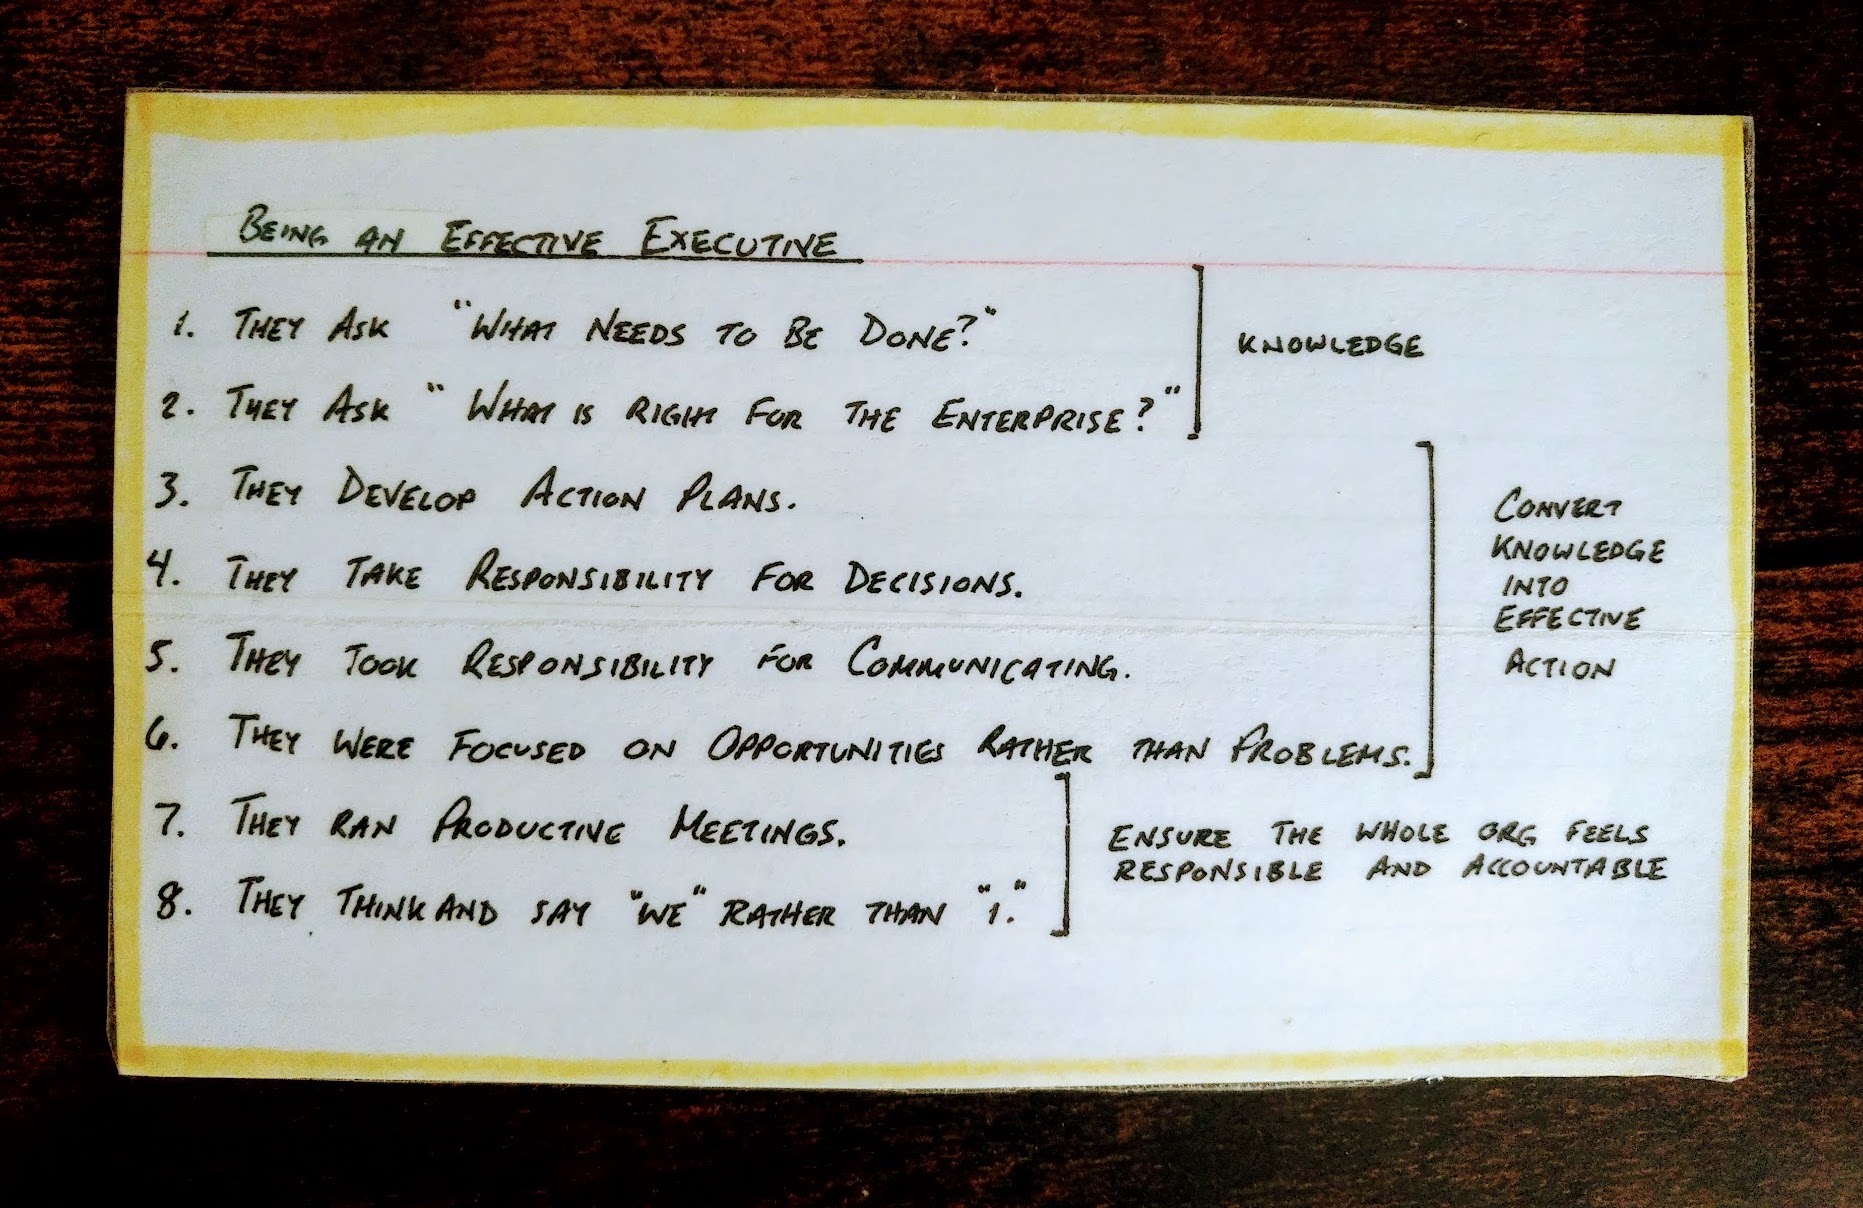 BEING AN EFFECTIVE EXECUTIVE
1. THEY ASK "WHAT NEEDS TO BE DONE?"
2. THEY ASK "WHAT IS RIGHT FOR THE ENTERPRISE?"
KNOWLEDGE
3. THEY DEVELOP ACTION PLANS.
4. THEY TAKE RESPONSIBILITY FOR DECISIONS.
5. THEY TOOK RESPONSIBILITY FOR COMMUNICATING.
6. THEY WERE FOCUSED ON OPPORTUNITIES RATHER THAN PROBLEMS.
CONVERT
KNOWLEDGE
INTO
EFFECTIVE
ACTION
7. THEY RAN PRODUCTIVE MEETINGS.
8. THEY THINK AND SAY "WE" RATHER THAN "I."
ENSURE THE WHOLE ORG FEELS
RESPONSIBLE AND ACCOUNTABLE